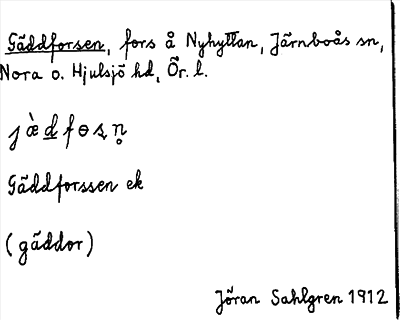 Gäddforsen, fors å Nyhyttan, Järnboås sn,
Nora o. Hjulsjö hd, Ör. l.
Gäddforssen ek
(gäddor)
Jöran Sahlgren 1912